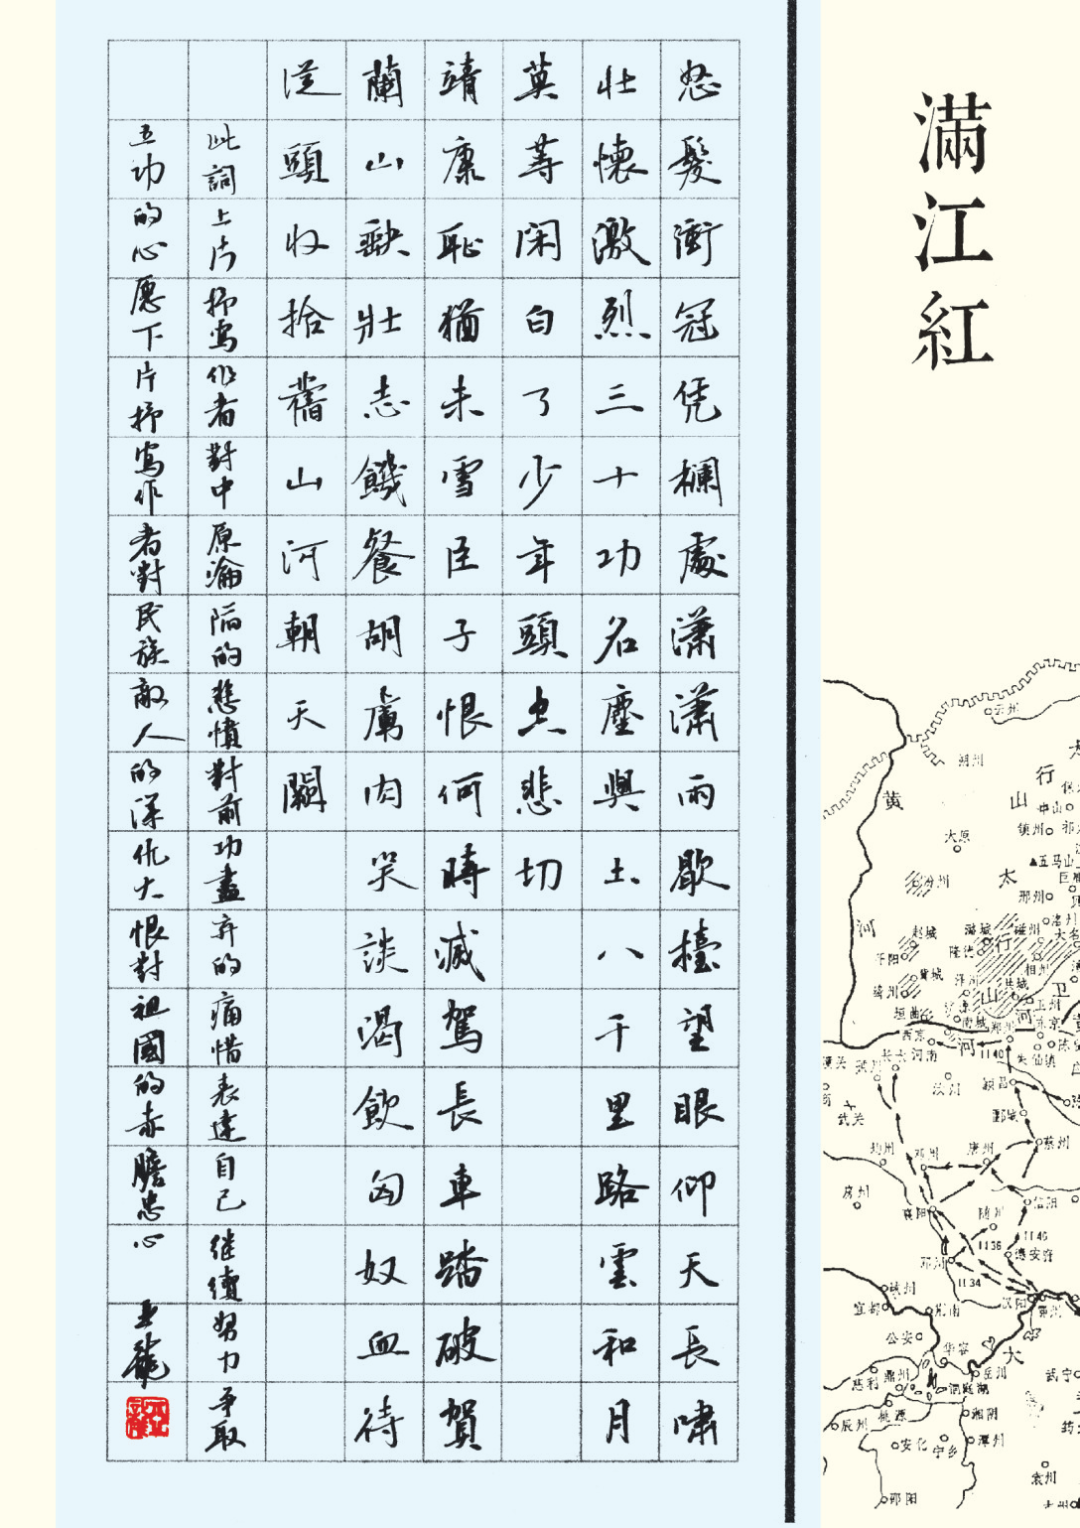 滿江紅
怒髮衝冠凭欄處潇潇雨歇擡望眼仰天長嘯
壯懷激烈三十功名塵與土八千里路雲和月
莫等閑白了少年頭空悲切
靖康恥猶未雪臣子恨何時滅駕長車踏破賀
蘭山缺壯志饑餐胡虜肉笑談渴飲匈奴血待
從頭收拾舊山河朝天闕
此詞上片抒寫作者對中原淪陷的悲憤對前功盡弃的痛惜表達自己继續努力争取
立功的心愿下片抒寫作者對民族敵人的深仇大恨對祖國的赤膽忠心
亚龍
云州
朔州
黄
行
山
大原
镇州
五马山
太
汾州
邢州
河
赵城
潞城
磁州
隆德
大名
行
相州
卫
山
绛州
垣曲
西京
郑州
河
1140
朱仙镇
长水
河南
汝州
颍昌
武关
郾城
蔡州
均州
邓州
唐州
房州
襄阳
随州
信阳
1136
1146
德安府
郢州
1134
汉阳
鄂州
峡州
宜都
荆南
公安
华容
大
岳州
慈利
鼎州
洞庭湖
武宁
桃源
湘阴
辰州
安化
宁乡
潭州
袁州
邵阳